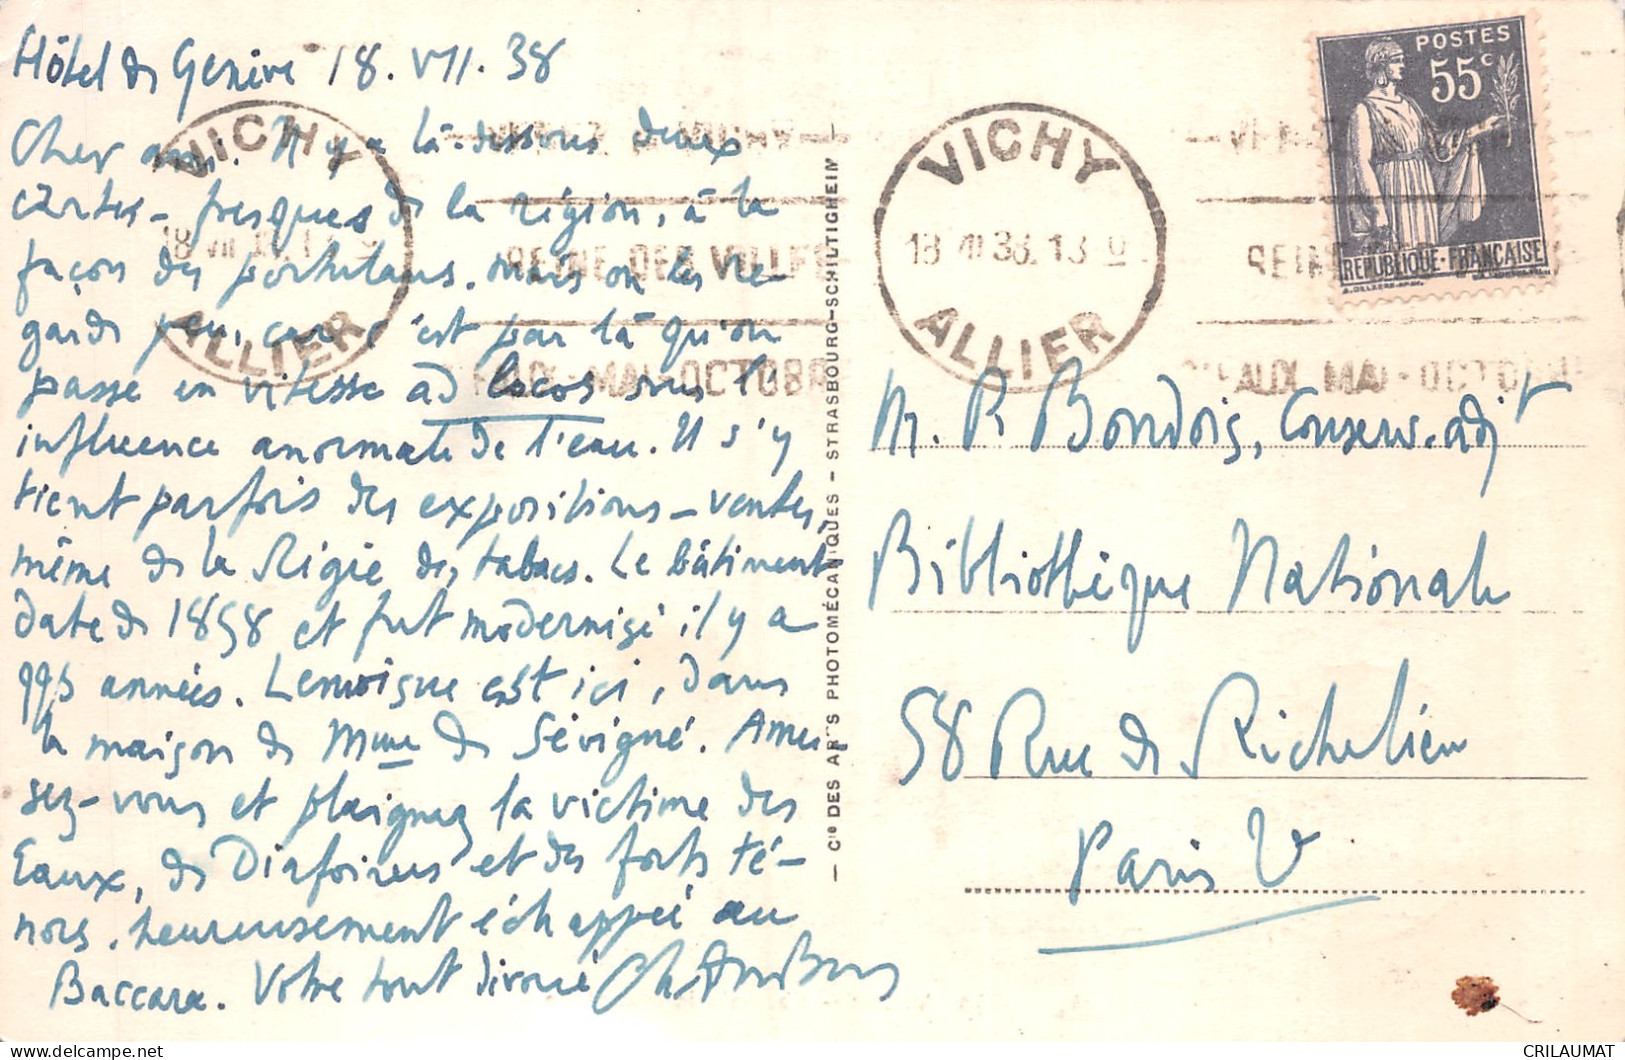 Hôtel de Genève 18. VII. 38
Cher ami. Il y a là-dessous deux
cartes - fresques de la région, à la
façon des portulans. Mais on les re-
garde peu, car c'est par là qu'on
passe en vitesse ad locos sous l'
influence anormale de l'eau. Il s'y
tient parfois des expositions-ventes,
même de la Régie des tabacs. Le bâtiment
date de 1858 et fut modernisé il y a
qqs années. Lemoisne est ici, dans
la maison de Mme de Sévigné. Amu-
sez-vous et plaignez la victime des
Eaux, de Diafoirus et des forts té-
nors, heureusement échappé au
Baccara. Votre tout dévoué
VICHY
18 VII
ALLIER
REINE DES VILLES
MAI - OCTOBRE
— Cie DES ARTS PHOTOMÉCANIQUES - STRASBOURG-SCHILTIGHEIM —
VICHY
18 VII 38. 13
ALLIER
REINE
EAUX MAI - OCTOBRE
POSTES
55c
REPUBLIQUE-FRANÇAISE
M. P. Bondois, Conserv. adjt
Bibliothèque Nationale
58 Rue de Richelieu
Paris
CRILAUMAT